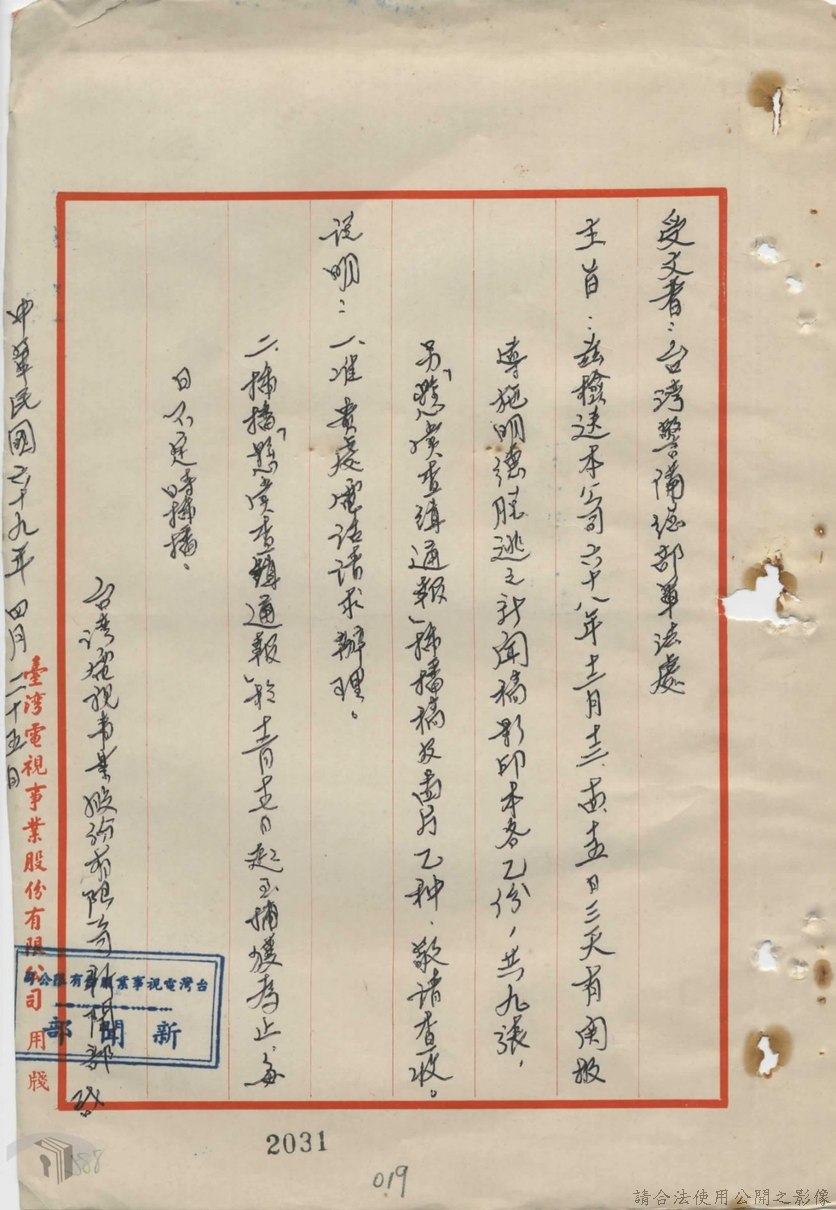 受文者：台湾警備總部軍法處
主旨：茲檢送本公司六十八年十二月十三、十四、十五日三天有関報
導施明德脫逃之新聞稿影印本各乙份，共九張，
另「懸賞查緝通報」插播稿及圖片乙种、敬請查收。
说明：一、准貴處電话请求辦理。
二、插播「懸賞查緝通報」於十二月十七日起至捕獲為止，每
日不定時插播、
台湾電視事業股份有限公司新聞部 啟
中華民國六十九年四月二十五日
臺湾電視事業股份有限公司 用牋
台灣電視事業股份有限公司
新聞部
2031
019
088
請合法使用公開之影像